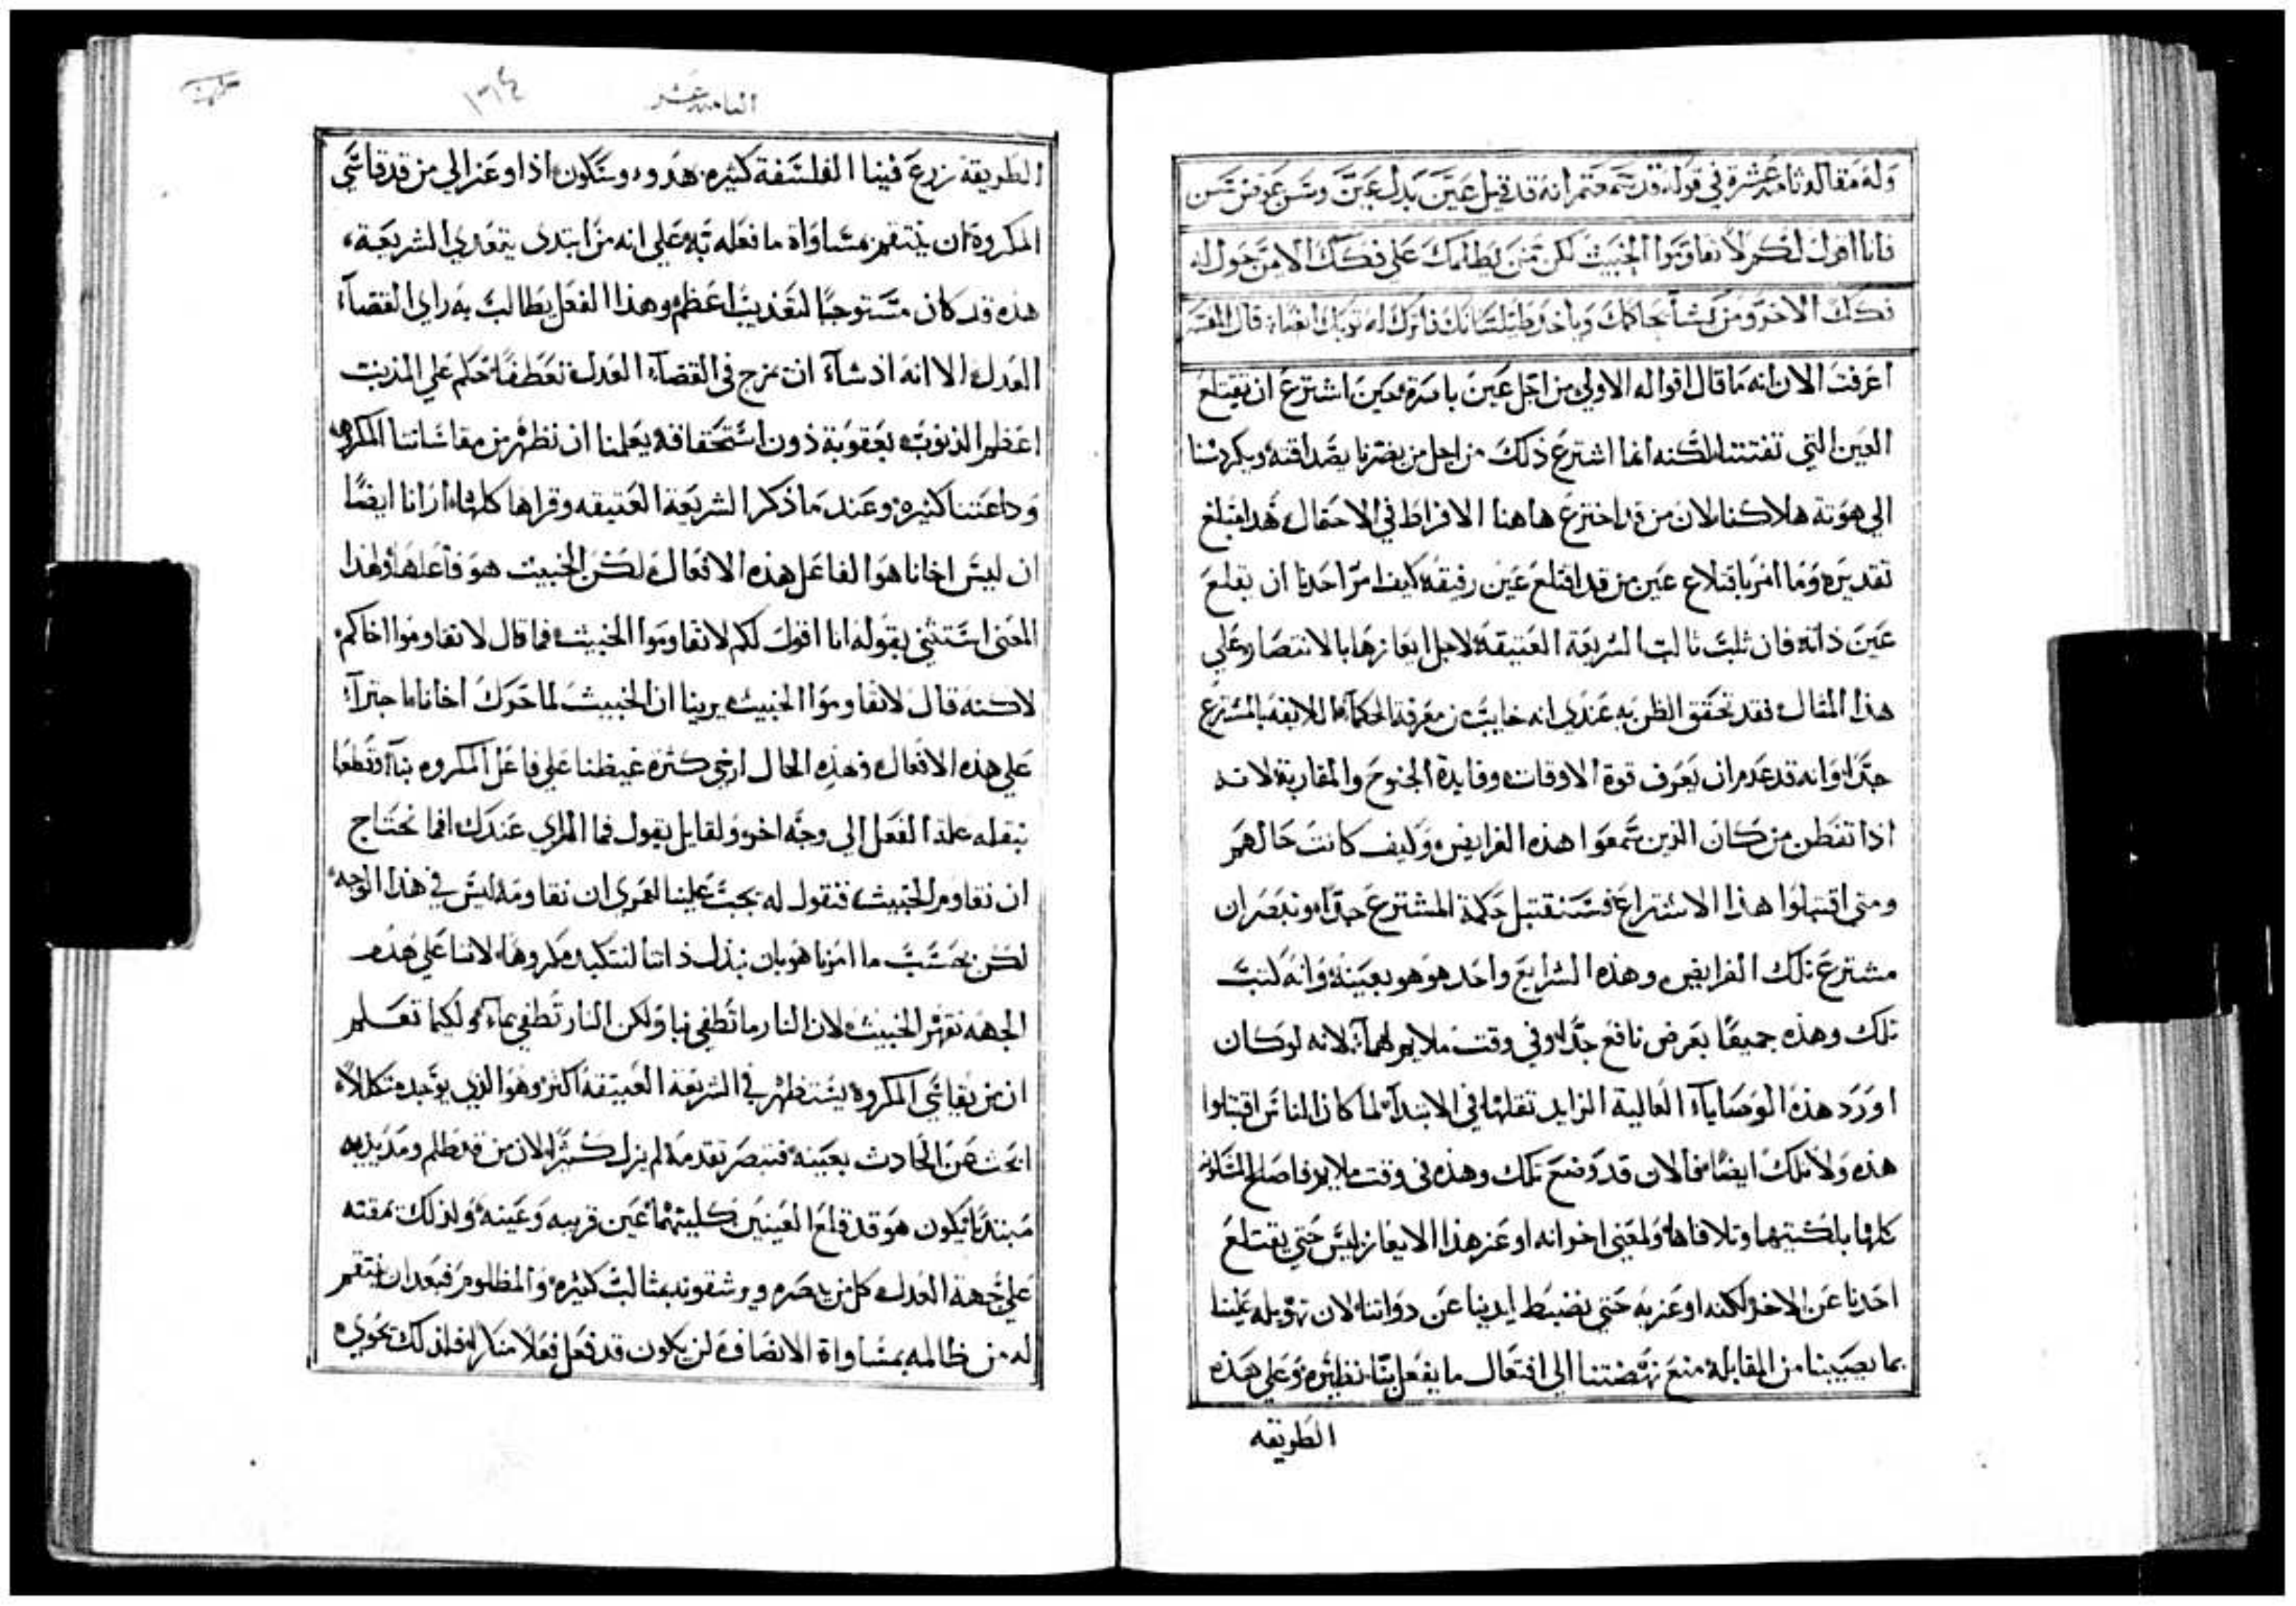 وله مقاله ثامنه عشرة في قوله قد سمعتم انه قد قيل عين بدل عين وسن عوض سن
فانا اقول لكم لا تقاوموا الخبيث لكن من يطلمك على فكك الامن حول له
فكك الاخر ومن يشأ يحاكمك وياخذ طيلسانك فاترك له ثوبك ايضا قال المفسر
اعرفت الان انه ما قال اقواله الاولي من اجل عين بامره حين اشترع ان تقتلع
العين التي تفتننا لكنه انما اشترع ذلك من اجل من يضرنا بصداقته ويكردسنا
الي هوتة هلاكنا لان من قد اخترع هاهنا الافراط في الاحتمال هذا مبلغ
تقديره وما امر باقتلاع عين من قد اقتلع عين رفيقه كيف امر احدنا ان يقلع
عين ذاته فان ثلب ثالب الشريعة العتيقة لاجل ايعازها بالانتصار علي
هذا المثال فقد تحقق الظن به عندي انه خايب من معرفة الحكمة اللايقة بالمشترع
جدا وانه قد عدم ان يعرف قوة الاوقات وفايدة الجنوح والمقاربة لانه
اذا تفطن من كان الذين سمعوا هذه الفرايض وكيف كانت حالهم
ومتي اقتبلوا هذا الاشتراع فسنقتبل حكمة المشترع جدا ونبصر ان
مشترع تلك الفرايض وهذه الشرايع واحد هو هو بعينه وانه كتب
تلك وهذه جميعا بغرض نافع جدا وفي وقت ملايم لهما لانه لو كان
اورد هذه الوصايا العالية الزايد ثقلها في الابتدا لما كان الناس اقتبلوا
هذه ولا تلك ايضا فالان قد وضع تلك وهذه في وقت ملايم فاصلح المسكونه
كلها بكلتيهما وتلافاها ولمعني اخر انه اوعز هذا الايعاز ليس حتي يقتلع
احدنا عين الاخر لكنه اوعز به حتي نضبط ايدينا عن ذواتنا لان تهويله علينا
بما يصيبنا من المقابلة منع نهضتنا الي افتعال ما يفعل بنا نظيره وعلي هذه
الطريقه
الثامنه عشر
١٦٤
الطريقة زرع فينا الفلسفة كثيره هدو وسكون اذا اوعز الي من قد قاسي
المكروه ان ينتقم بمساواة ما فعله به علي انه من ابتدي يتعدي الشريعة
هذه قد كان مستوجبا لتعذيب اعظم وهذا الفعل يطالب به راي القضآء
العدل الا انه اذ شآء ان يمزج في القضآء العدل تعطفا حكم علي المذنب
اعظم الذنوب بعقوبة دون استحقاقه يعلمنا ان نظهر من مقاساتنا المكروه
وداعتنا كثيره وعند ما ذكر الشريعة العتيقه وقراها كلها ارانا ايضا
ان ليس اخانا هو الفاعل هذه الافعال لكن الخبيث هو فاعلها ولهذا
المعني استثني بقوله انا اقول لكم لا تقاوموا الخبيث فما قال لا تقاوموا اخاكم
لاكنه قال لا تقاوموا الخبيث يرينا ان الخبيث لما حرك اخانا ما جترآء
علي هذه الافعال فهذه الحال ارخي كثرة غيظنا علي فاعل المكروه بنا وقطعا
بنقله علة الفعل الي وجه اخر ولقايل يقول فما الراي عندك افما نحتاج
ان نقاوم الخبيث فنقول له يجب علينا لعمري ان نقاومه ليس في هذا الوجه
لكن بحسب ما امرنا هو بان نبذل ذاتنا لنتكبد مكروها لاننا علي هذه
الجهة نقهر الخبيث لان النار ما تطفي نها ولكن النار تطفي بمآء ولكيما تعلم
ان من يقاسي المكروه يستظهر في الشريعة العتيقة اكثر وهو الذي يوجد متكللا
ابحث عن الحادث بعينه فتبصر تقدمه لم يزل كثيرا لان من قد ظلم ومد يديه
مبتديا يكون هو قد قلع العينين كليتهما عين قريبه وعينه ولذلك يمقته
علي جهة العدل كل من يبصره ويرشقونه بمثالب كثيره والمظلوم فبعد ان ينتقم
له من ظالمه بمساواة الانصاف لن يكون قد فعل فعلا منكرا فلذلك يحوي